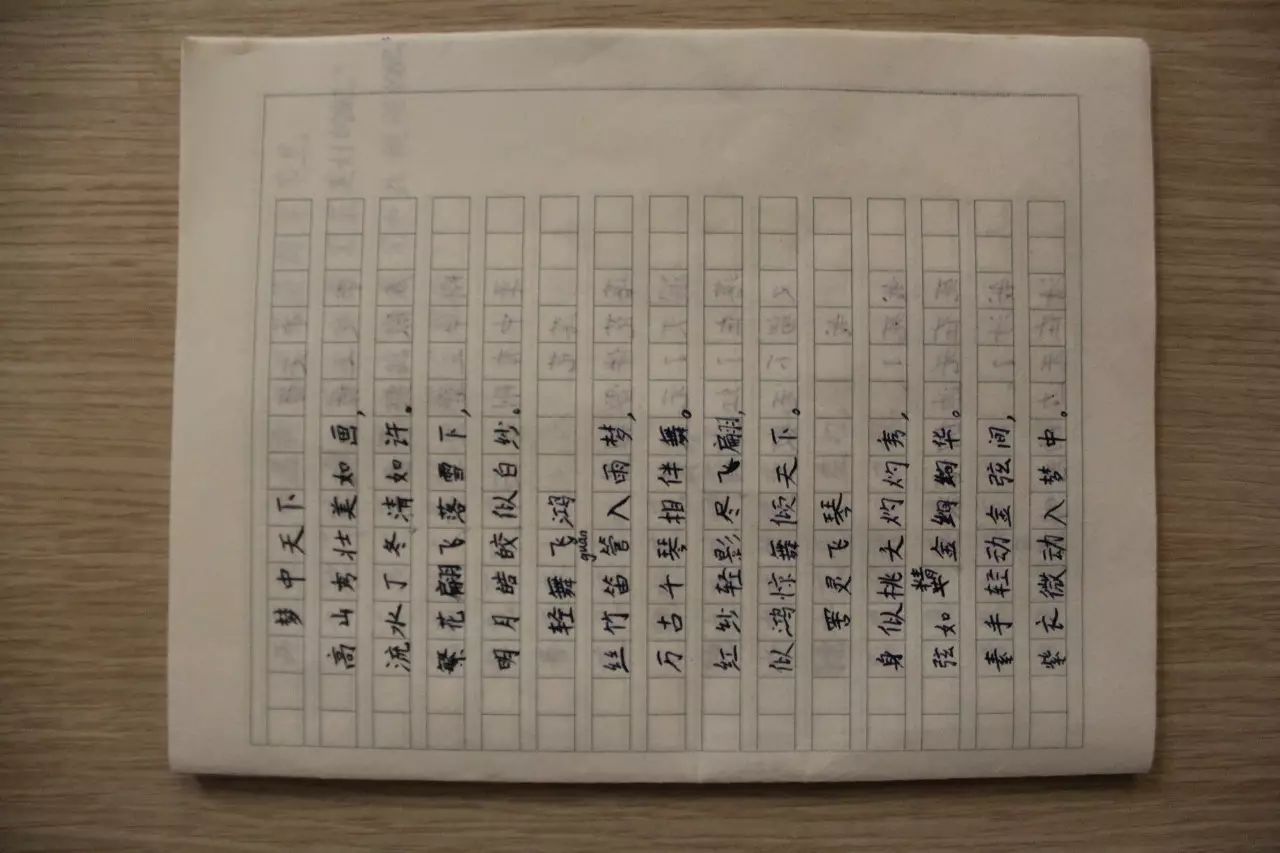 梦中天下
高山秀壮美如画,
流水丁冬清如许。
繁花翩飞落雪下,
明月皓皎似白纱。
轻舞飞鸿
guǎn
丝竹笛管入雨梦,
万古千琴相伴舞。
红纱轻影尽飞翩,
似鸿惊舞倾天下。
灵飞琴
身似桃夭灼灼秀,
弦如金绸绸华。
素手轻动金弦间,
紫衣微动入梦中。